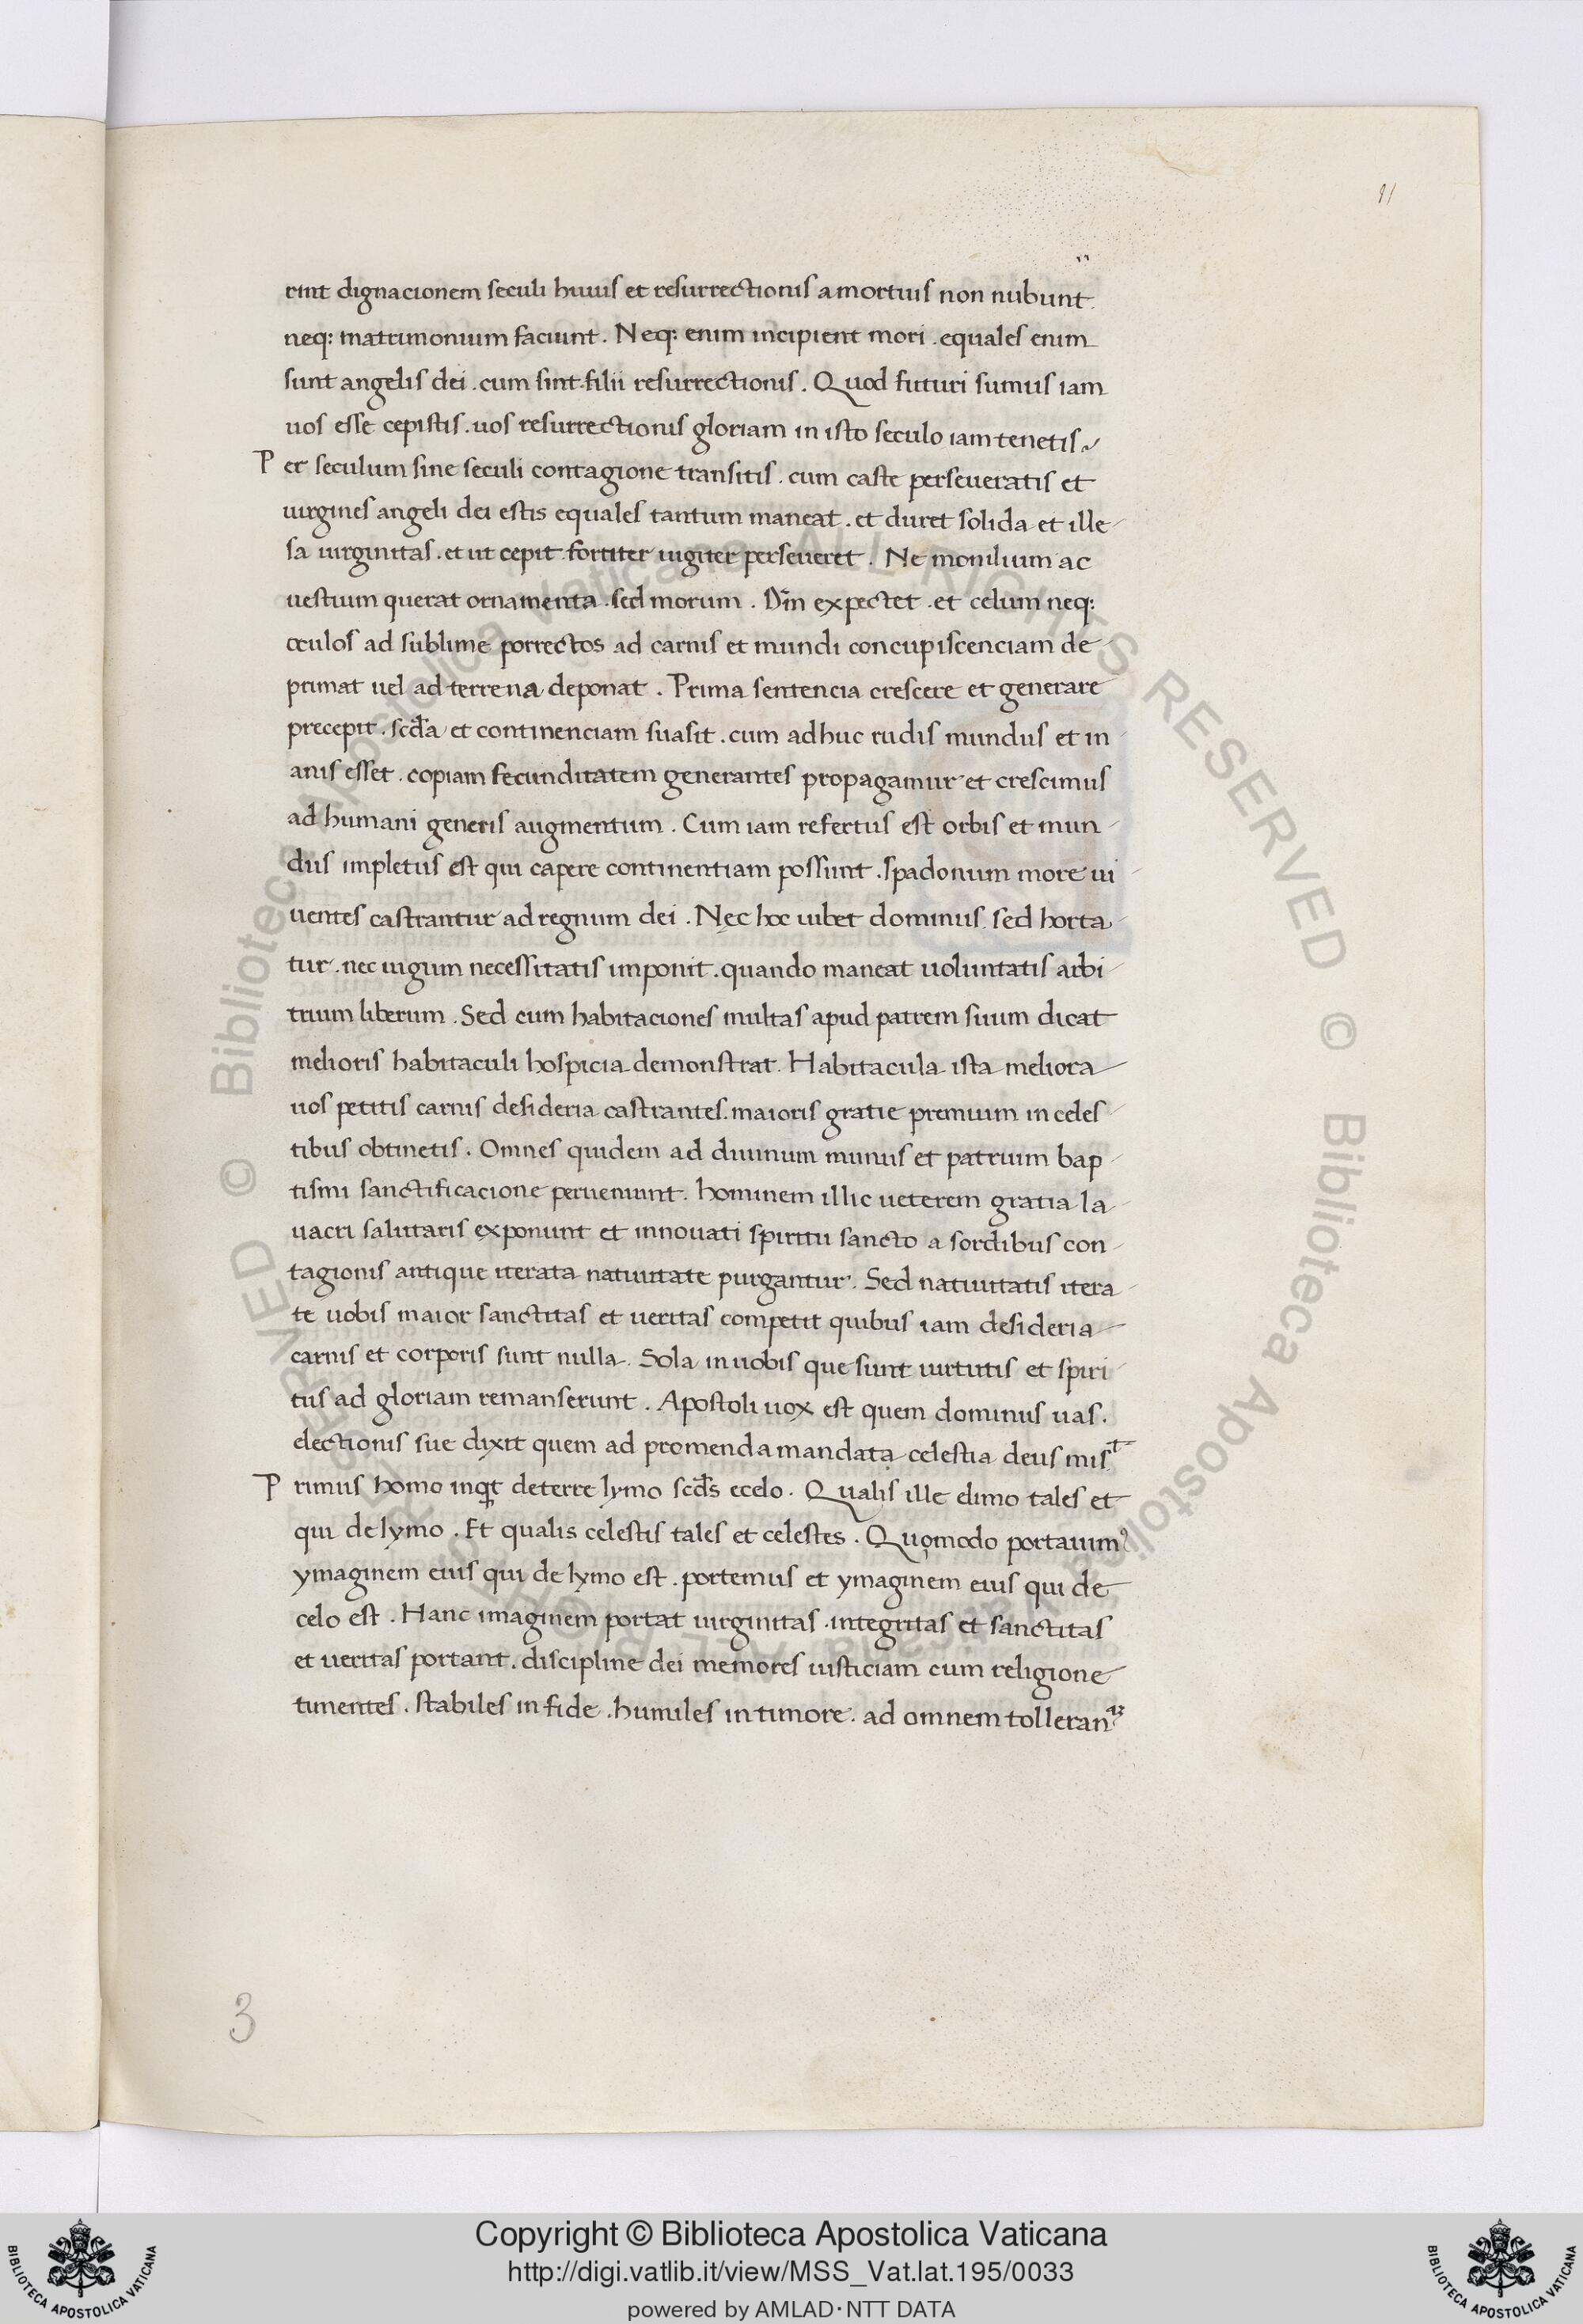 11
rint dignacionem seculi huius et resurrectionis a mortuis non nubunt
neq: matrimonium faciunt. Neq: enim incipient mori. equales enim
sunt angelis dei. cum sint filii resurrectionis. Quod futuri sumus iam
uos esse cepistis. uos resurrectionis gloriam in isto seculo iam tenetis
Per seculum sine seculi contagione transitis. cum caste perseueratis et
uirgines angeli dei estis equales tantum maneat. et duret solida et ille
sa uirginitas. et ut cepit fortiter iugiter perseueret. Ne monilium ac
uestium querat ornamenta. sed morum. Dūm expectet. et celum neq:
oculos ad sublime porrectos ad carnis et mundi concupiscenciam de
primat uel ad terrena deponat. Prima sentencia crescere et generare
precepit. scd̄a et continenciam suasit. cum adhuc rudis mundus et in
anis esset. copiam fecunditatem generantes propagamur et crescimus
ad humani generis augmentum. Cum iam refertus est orbis et mun
dus impletus est qui capere continentiam possunt. spadonum more ui
uentes castrantur ad regnum dei. Nec hoc iubet dominus. sed horta
tur. nec iugum necessitatis imponit. quando maneat uoluntatis arbi
trium liberum. Sed cum habitaciones multas apud patrem suum dicat
melioris habitaculi hospicia demonstrat. Habitacula ista meliora
uos petitis carnis desideria castrantes. maioris gratie premium in celes
tibus obtinetis. Omnes quidem ad diuinum munus et patrium bap
tismi sanctificacione perueniunt. hominem illic ueterem gratia la
uacri salutaris exponunt et innouati spiritu sancto a sordibus con
tagionis antique iterata natiuitate purgantur. Sed natiuitatis itera
te uobis maior sanctitas et ueritas competit quibus iam desideria
carnis et corporis sunt nulla. Sola in uobis que sunt uirtutis et spiri
tus ad gloriam remanserunt. Apostoli uox est quem dominus uas.
electionis sue dixit quem ad promenda mandata celestia deus misᵗ
Primus homo inq̇t de terre lymo scd̄s e celo. Qualis ille e limo tales et
qui de lymo. Et qualis celestis tales et celestes. Quomodo portauimꝰ
ymaginem eius qui de lymo est. portemus et ymaginem eius qui de
celo est. Hanc imaginem portat uirginitas. integritas et sanctitas
et ueritas portant. discipline dei memores iusticiam cum religione
timentes. stabiles in fide. humiles in timore. ad omnem
3
Copyright © Biblioteca Apostolica Vaticana
http://digi.vatlib.it/view/MSS_Vat.lat.195/0033
powered by AMLAD·NTT DATA
BIBLIOTECA APOSTOLICA VATICANA
BIBLIOTECA APOSTOLICA VATICANA